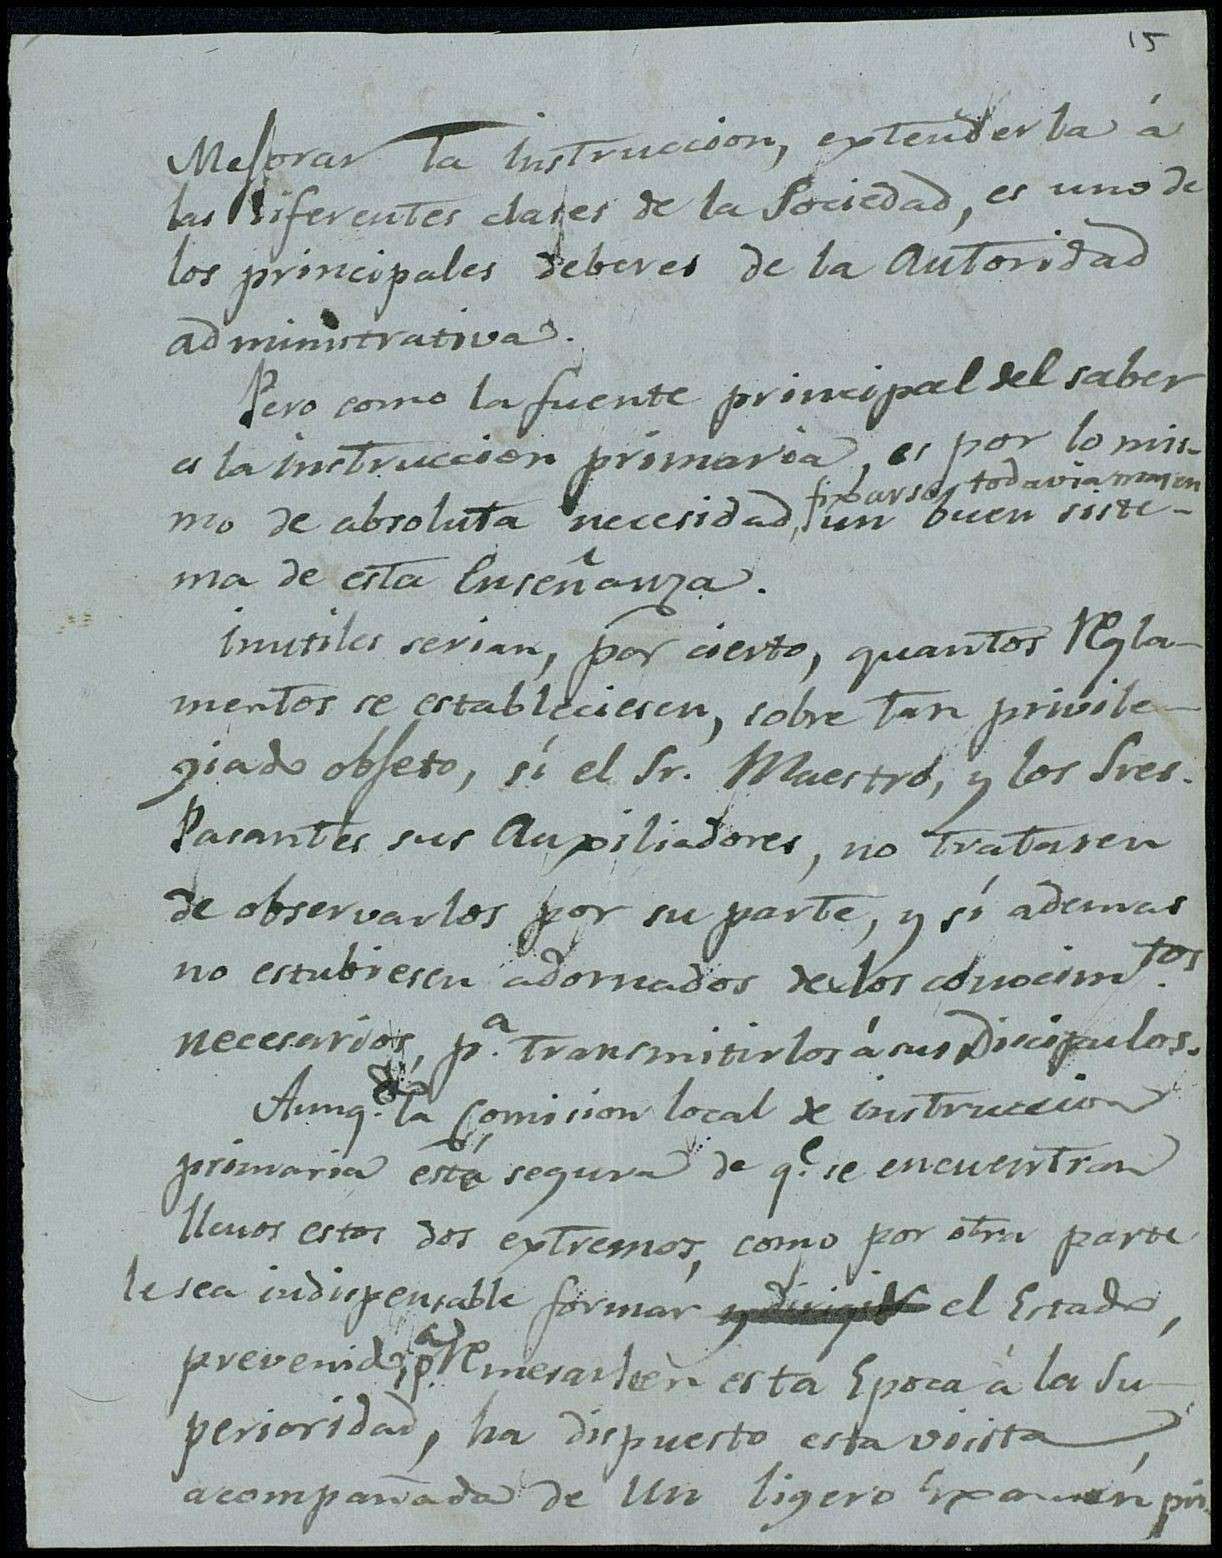 15
Mejorar la instruccion, extenderla á
las diferentes clases de la Sociedad, es uno de
los principales deberes de la Autoridad
administrativa.
Pero como la fuente principal del saber
es la instruccion primaria, es por lo mis-
fixarse todavia mas en
mo de absoluta necesidad, un buen siste-
ma de esta Enseñanza.
Inutiles serian, por cierto, quantos Regla-
mentos se estableciesen, sobre tan privile-
giado objeto, sí el Sr. Maestro, y los Sres.
Pasantes sus Auxiliadores, no tratasen
de observarlos por su parte, y sí ademas
no estubiesen adornados de los conocim.tos
necesarios, p.a transmitirlos á sus Discipulos.
Aunq.e la Comision local de instruccion
primaria está segura de q.e se encuentran
llenos estos dos extremos, como por otra parte
le sea indispensable formar y dirigir el Estado,
prevenido, p.a Remesarlo en esta Epoca á la Su-
perioridad, ha dispuesto esta visita,
acompañada de Un ligero Examen